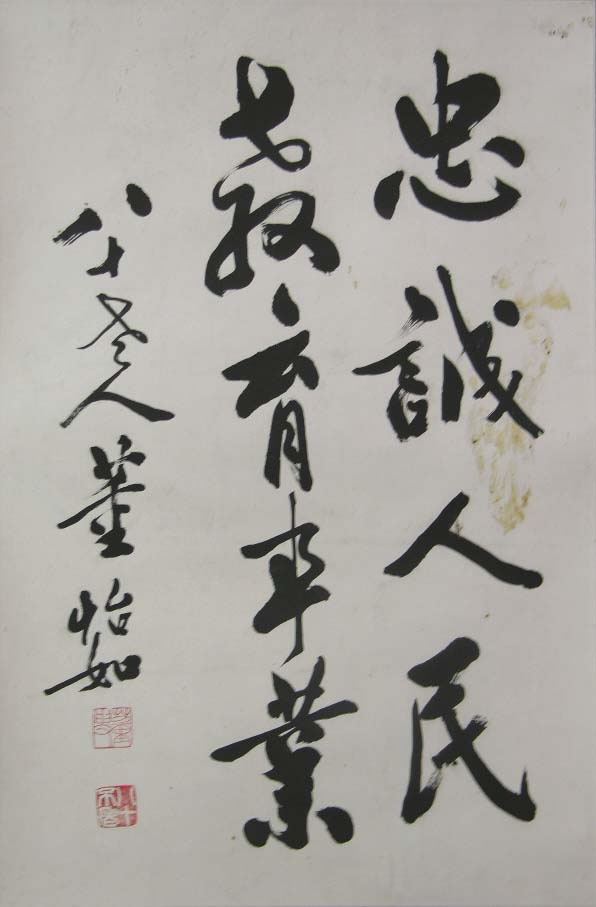 忠誠人民
教育事業
八十老人董怡如